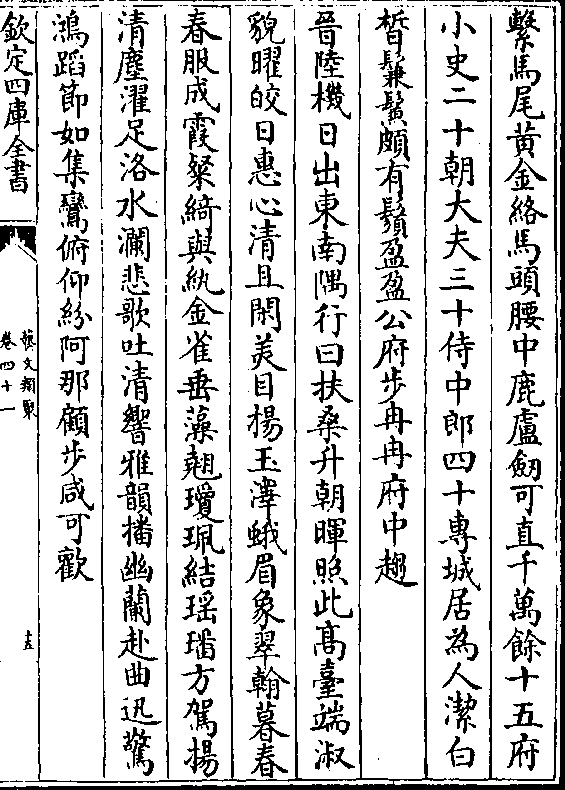 繫馬尾黃金絡馬頭腰中鹿盧劒可直千萬餘十五府
小史二十朝大夫三十侍中郎四十專城居為人潔白
晳鬑鬑頗有鬚盈盈公府步冉冉府中趨
晉陸機日出東南隅行曰扶桑升朝暉照此髙臺端淑
貌曜皎日惠心清且閑美目揚玉澤蛾眉象翠翰暮春
春服成霞粲綺與紈金雀垂藻翹瓊珮結瑶璠方駕揚
清塵濯足洛水瀾悲歌吐清響雅韻播幽蘭赴曲迅驚
鴻蹈節如集鸞俯仰紛阿那顧步咸可歡
欽定四庫全書
藝文類聚
卷四十一
十五